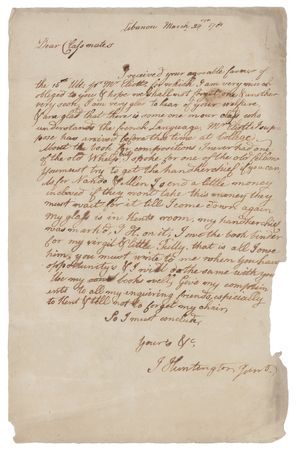 Lebanon March 29th
Dear Classmates
I received your agreable favour of
the 15th Ult. for which I am very much
obliged to you & hope we shall not forget one & another
very soon, I am very glad to hear of your welfare,
& am glad that there is some one in our class who
understands the french Language,
have arrived before this time at College,
the book for compositions I never had one
of the old I spoke for one of the old
You must try to get the handkerchief if you can
As for & I send a little money
inclosed if they wont take this money they
must wait for it till I come down again
my glass is in room, my handkerchief
was markd I H on it, I owe the book binder
for my virgil & little Tully, that is all I owe
him, you must write to me when you have
oppertunity & I will do the same with you
my books over, Give my complim
ents to all my inquiring friends, especially
to & not forget my chair,
So I must conclude,
Yours &c.
J Huntington Junr